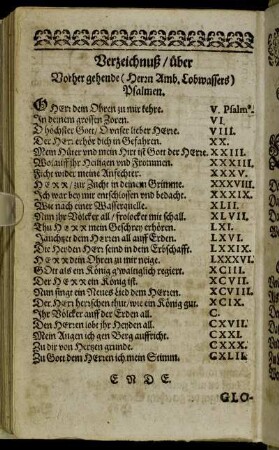 Verzeichnuß / über
Vorher gehende (Herrn Amb. Lobwassers)
Psalmen.
HErr dem Ohren zu mir kehre. V. Psalm.
In deinem grossen Zoren. VI.
O höchster Gott / O vnser lieber HErre. VIII.
Der Herr erhör dich in Gefahren. XX.
Mein Hüter vnd mein Hirt ist Gott der HErre. XXIII.
Wolauff ihr Heiligen vnd Frommen. XXXIII.
Ficht wider meine Anfechter. XXXV.
HERR / zur Zucht in deinem Grimme. XXXVIII.
Ich war bey mir entschlossen vnd bedacht. XXXIX.
Wie nach einer Wasserquelle. XLII.
Nun ihr Völcker all / frolocket mir schall. XLVII.
Thu HERR mein Geschrey erhören. LXI.
Jauchzet dem Herren all auff Erden. LXVI.
Die Heyden Herr seind in dein Erbschafft. LXXIX.
HERR dein Ohren zu mir neige. LXXXVI.
GOtt als ein König gwaltiglich regiert. XCIII.
Der HERR ein König ist. XCVII.
Nun singt ein Neues Lied dem HErren. XCVIII.
Der Herr herrschen thut / wie ein König gut. XCIX.
Ihr Völcker auff der Erden all. C.
Den HErren lobt ihr Heyden all. CXVII.
Mein Augen ich gen Berg auffricht. CXXI.
Zu dir von Hertzen grunde. CXXX.
Zu Gott dem HErren ich mein Stimm. CXLII.
ENDE.
GLO-